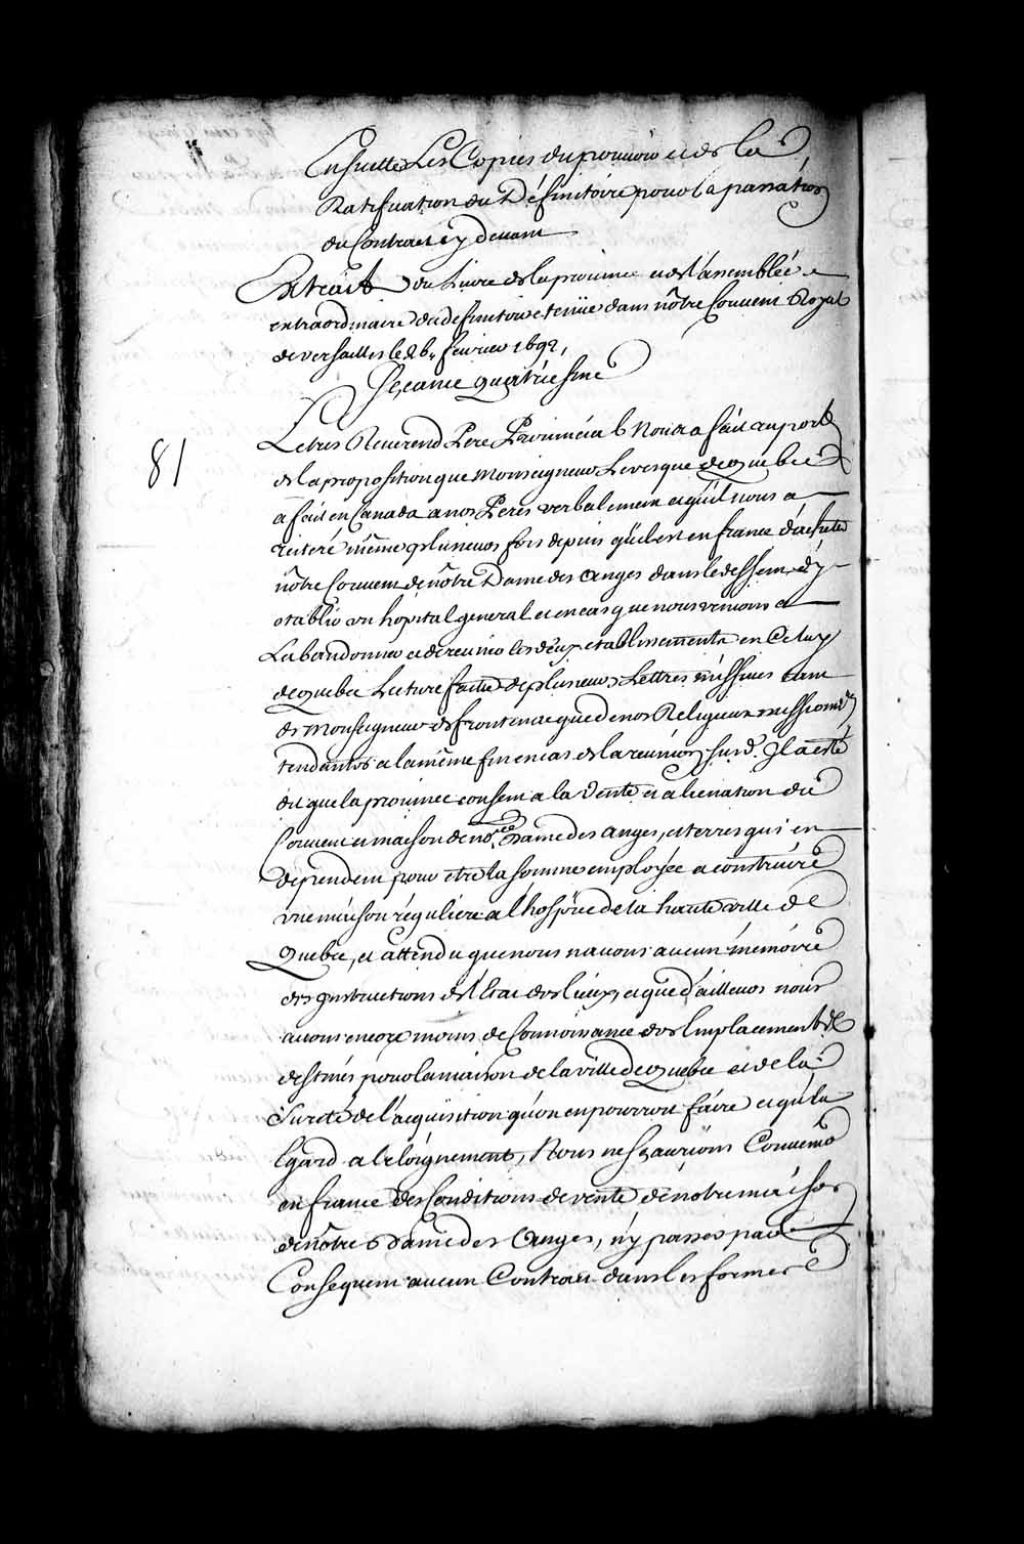 Ensuitte Les Copies du pouuoir et de La
Ratification du Définitoire pour la passation
du Contract cy deuant
Extrait du Liure de la prouince et de l'assemblée
extraordinaire du definitoire tenüe dans nôtre Conuent Royal
de versailles le 26. feurier 1692,
Seçance quatriesme
81
Le tres Reuerend Pere Prouincial Nous a fait rapport
de la proposition que Monseigneur L'evesque de quebec
a fait en Canada a nos Peres verbalement et qu'il nous a
reiteré même plusieurs fois depuis qu'il est en france d'achetter
nôtre Conuent de nôtre Dame des Anges dans le dessein d'y
establir un hôpital general et en cas que nous venions a
L'abandonner et de reunir les deux etablissements en Celuy
de quebec Lecture faitte de plusieurs Lettres missiues tant
de Monseigneur de frontenac que de nos Religieux missionres
tendantes a la même fin en cas de la reunion susd. Il a esté
dit que la prouince consent a la Vente et alienation du
Conuent et maison de notre Dame des Anges, et terres qui en
dépendent pour etre la somme employée a construire
vne maison réguliere a l'hospice de la haute ville de
Quebec, et attendu que nous n'auons aucun mémoire
des Instructions de l'Etat des lieux, et que d'ailleurs nous
auons encore moins de Connoissance de l'Emplacement
destinés pour la maison de la ville de Quebec et de la
Sureté de l'acquisition qu'on en pourroit faire et qu'eu
Egard a l'eloignement, Nous ne sçaurions Conuenir
en france des Conditions de vente de notre maison
de nôtre Dame des Anges, n'y passer par
Consequent aucun Contract dans les formes